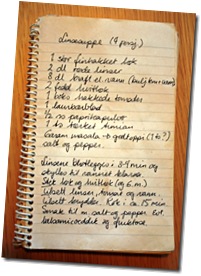 Linsesuppe (4 porsj.)
1 stor finhakket løk
2 dl røde linser
8 dl kraft el. vann (buljong + vann)
2 fedd hvitløk
1 boks hakkede tomater
1 laurbærblad
1/2 ts paprikapulver
1 ts tørket timian
Garam masala → godt oppi (1 ts?)
salt og pepper.
Linsene bløtlegges i 3-4 min og
skylles til vannet klarer
Stek løk og hvitløk (og g.m.)
Tilsett linser, tomat og vann.
Tilsett krydder. Kok i ca 15 min
Smak til m. salt og pepper evt
balsamicoeddik og